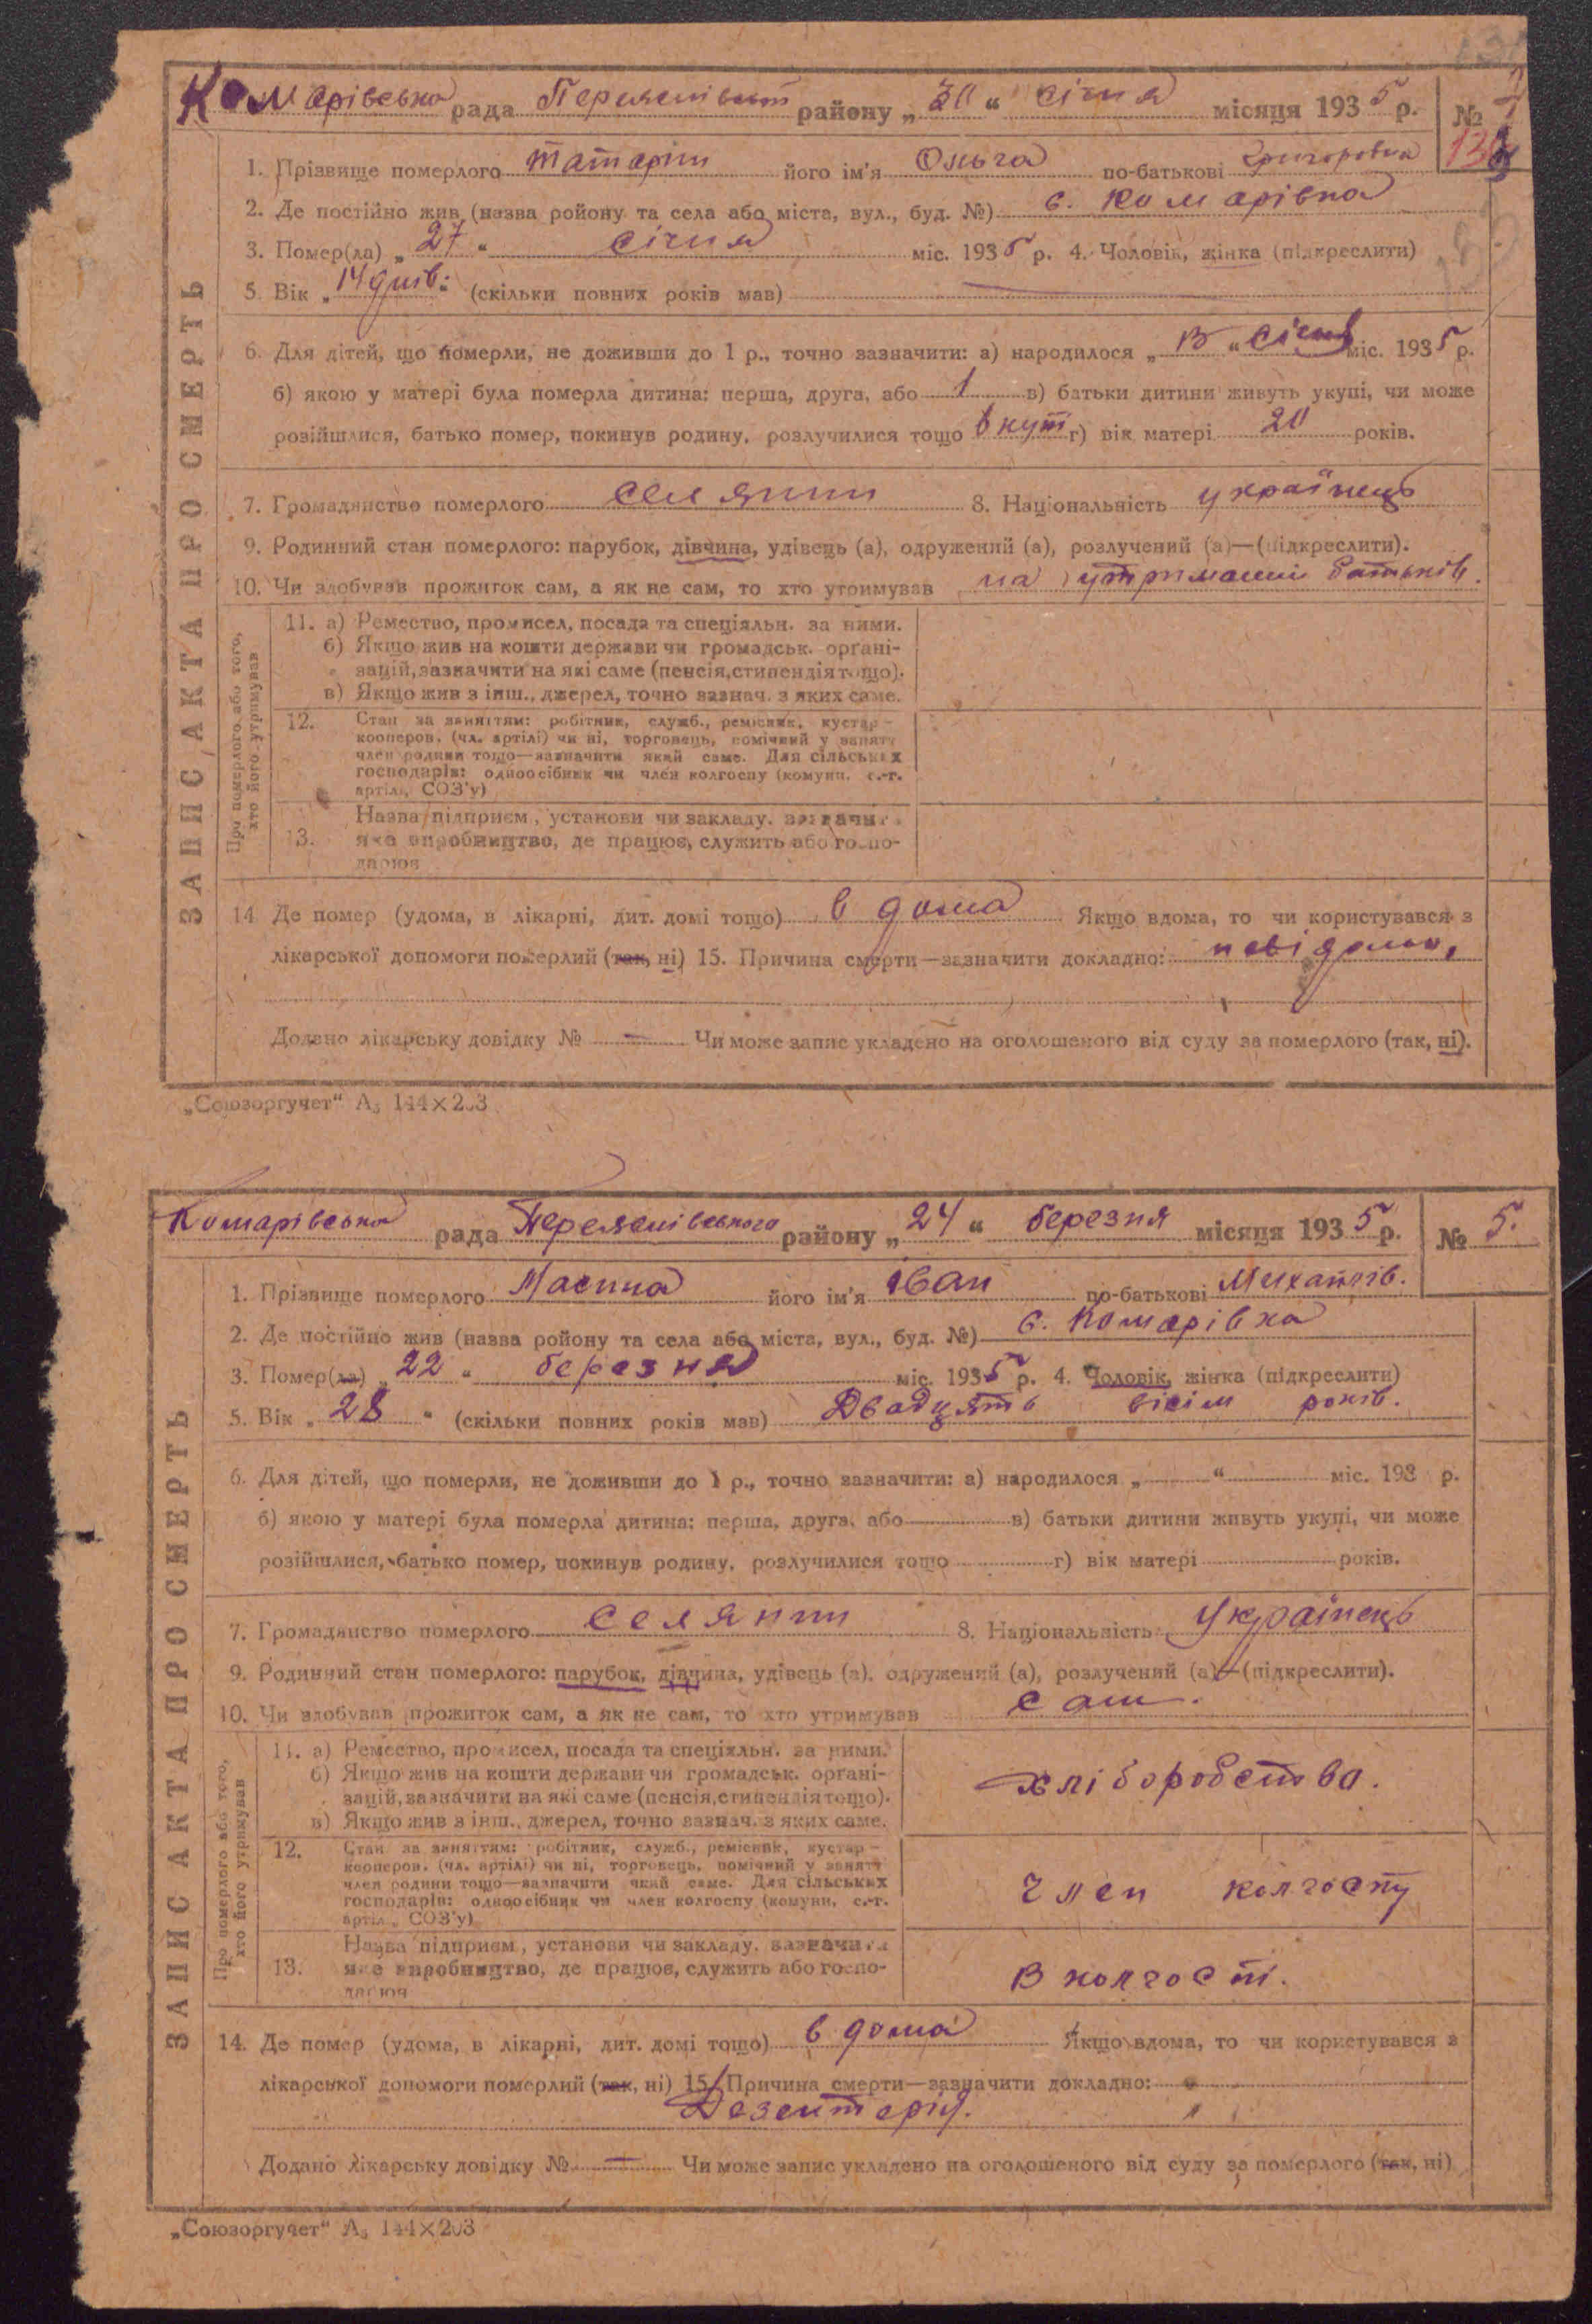 Комарівська рада Переяславськ району „ 30 “ січня місяця 1935 р. №
1. Прізвище померлого Татарін його ім'я Ольга по-батькові Григоровна
2. Де постійно жив (назва ройону та села або міста, вул., буд. №) с. Комарівка
3. Помер(ла) „ 27 “ січня міс. 1935 р. 4. Чоловік, жінка (підкреслити)
5. Вік „ 14 днів “ (скільки повних років мав)
6. Для дітей, що померли, не доживши до 1 р., точно зазначити: а) народилося „ 13 “ січня міс. 1935 р.
б) якою у матері була померла дитина: перша, друга, або 1 в) батьки дитини живуть укупі, чи може
розійшлися, батько помер, покинув родину, розлучилися тощо вкупі г) вік матері 20 років.
7. Громадянство померлого селянин 8. Національність українець
9. Родинний стан померлого: парубок, дівчина, удівець (а), одружений (а), розлучений (а)—(підкреслити).
10. Чи здобував прожиток сам, а як не сам, то хто утримував на утриманні батьків.
11. а) Ремество, промисел, посада та спеціяльн. за ними.
б) Якщо жив на кошти держави чи громадськ. орґані-
зацій, зазначити на які саме (пенсія, стипендія тощо).
в) Якщо жив з інш., джерел, точно зазнач. з яких саме.
12. Стан за заняттям: робітник, служб., ремісник, кустар-
кооперов. (чл. артілі) чи ні, торговець, помічний у занятт
член родини тощо—зазначити який саме. Для сільських
господарів: одноосібник чи член колгоспу (комуни, с.-г.
артілі, СОЗ'у)
Назва підприєм, установи чи закладу, зазначити
13. яке виробництво, де працює, служить або госпо-
дарює
Про померлого або того,
хто його утримував
ЗАПИС АКТА ПРО СМЕРТЬ
14 Де помер (удома, в лікарні, дит. домі тощо) в дома Якщо вдома, то чи користувався з
лікарської допомоги померлий (так, ні) 15. Причина смерти—зазначити докладно: невідомо,
Додано лікарську довідку № — Чи може запис укладено на оголошеного від суду за померлого (так, ні).
„Союзоргучет“ А5 144×203
Комарівська рада Переяславського району „ 24 “ березня місяця 1935 р. № 5.
1. Прізвище померлого його ім'я Іван по-батькові Михайлів.
2. Де постійно жив (назва ройону та села або міста, вул., буд. №) с. Комарівка
3. Помер(ла) „ 22 “ березня міс. 1935 р. 4. Чоловік, жінка (підкреслити)
5. Вік „ 28 “ (скільки повних років мав) Двадцять вісім років.
6. Для дітей, що померли, не доживши до 1 р., точно зазначити: а) народилося „ “ міс. 193 р.
б) якою у матері була померла дитина: перша, друга, або в) батьки дитини живуть укупі, чи може
розійшлися, батько помер, покинув родину, розлучилися тощо г) вік матері років.
7. Громадянство померлого селянин 8. Національність Українець
9. Родинний стан померлого: парубок, дівчина, удівець (а), одружений (а), розлучений (а)—(підкреслити).
10. Чи здобував прожиток сам, а як не сам, то хто утримував сам.
11. а) Ремество, промисел, посада та спеціяльн. за ними.
б) Якщо жив на кошти держави чи громадськ. орґані-
зацій, зазначити на які саме (пенсія, стипендія тощо).
в) Якщо жив з інш., джерел, точно зазнач. з яких саме.
хліборобство.
12. Стан за заняттям: робітник, служб., ремісник, кустар-
кооперов. (чл. артілі) чи ні, торговець, помічний у занятт
член родини тощо—зазначити який саме. Для сільських
господарів: одноосібник чи член колгоспу (комуни, с.-г.
артілі, СОЗ'у)
член колгоспу
Назва підприєм, установи чи закладу, зазначити
13. яке виробництво, де працює, служить або госпо-
дарює
В колгоспі.
Про померлого або того,
хто його утримував
ЗАПИС АКТА ПРО СМЕРТЬ
14. Де помер (удома, в лікарні, дит. домі тощо) в дома Якщо вдома, то чи користувався з
лікарської допомоги померлий (так, ні) 15. Причина смерти—зазначити докладно:
Дезентерія.
Додано лікарську довідку № — Чи може запис укладено на оголошеного від суду за померлого (так, ні)
„Союзоргучет“ А5 144×203